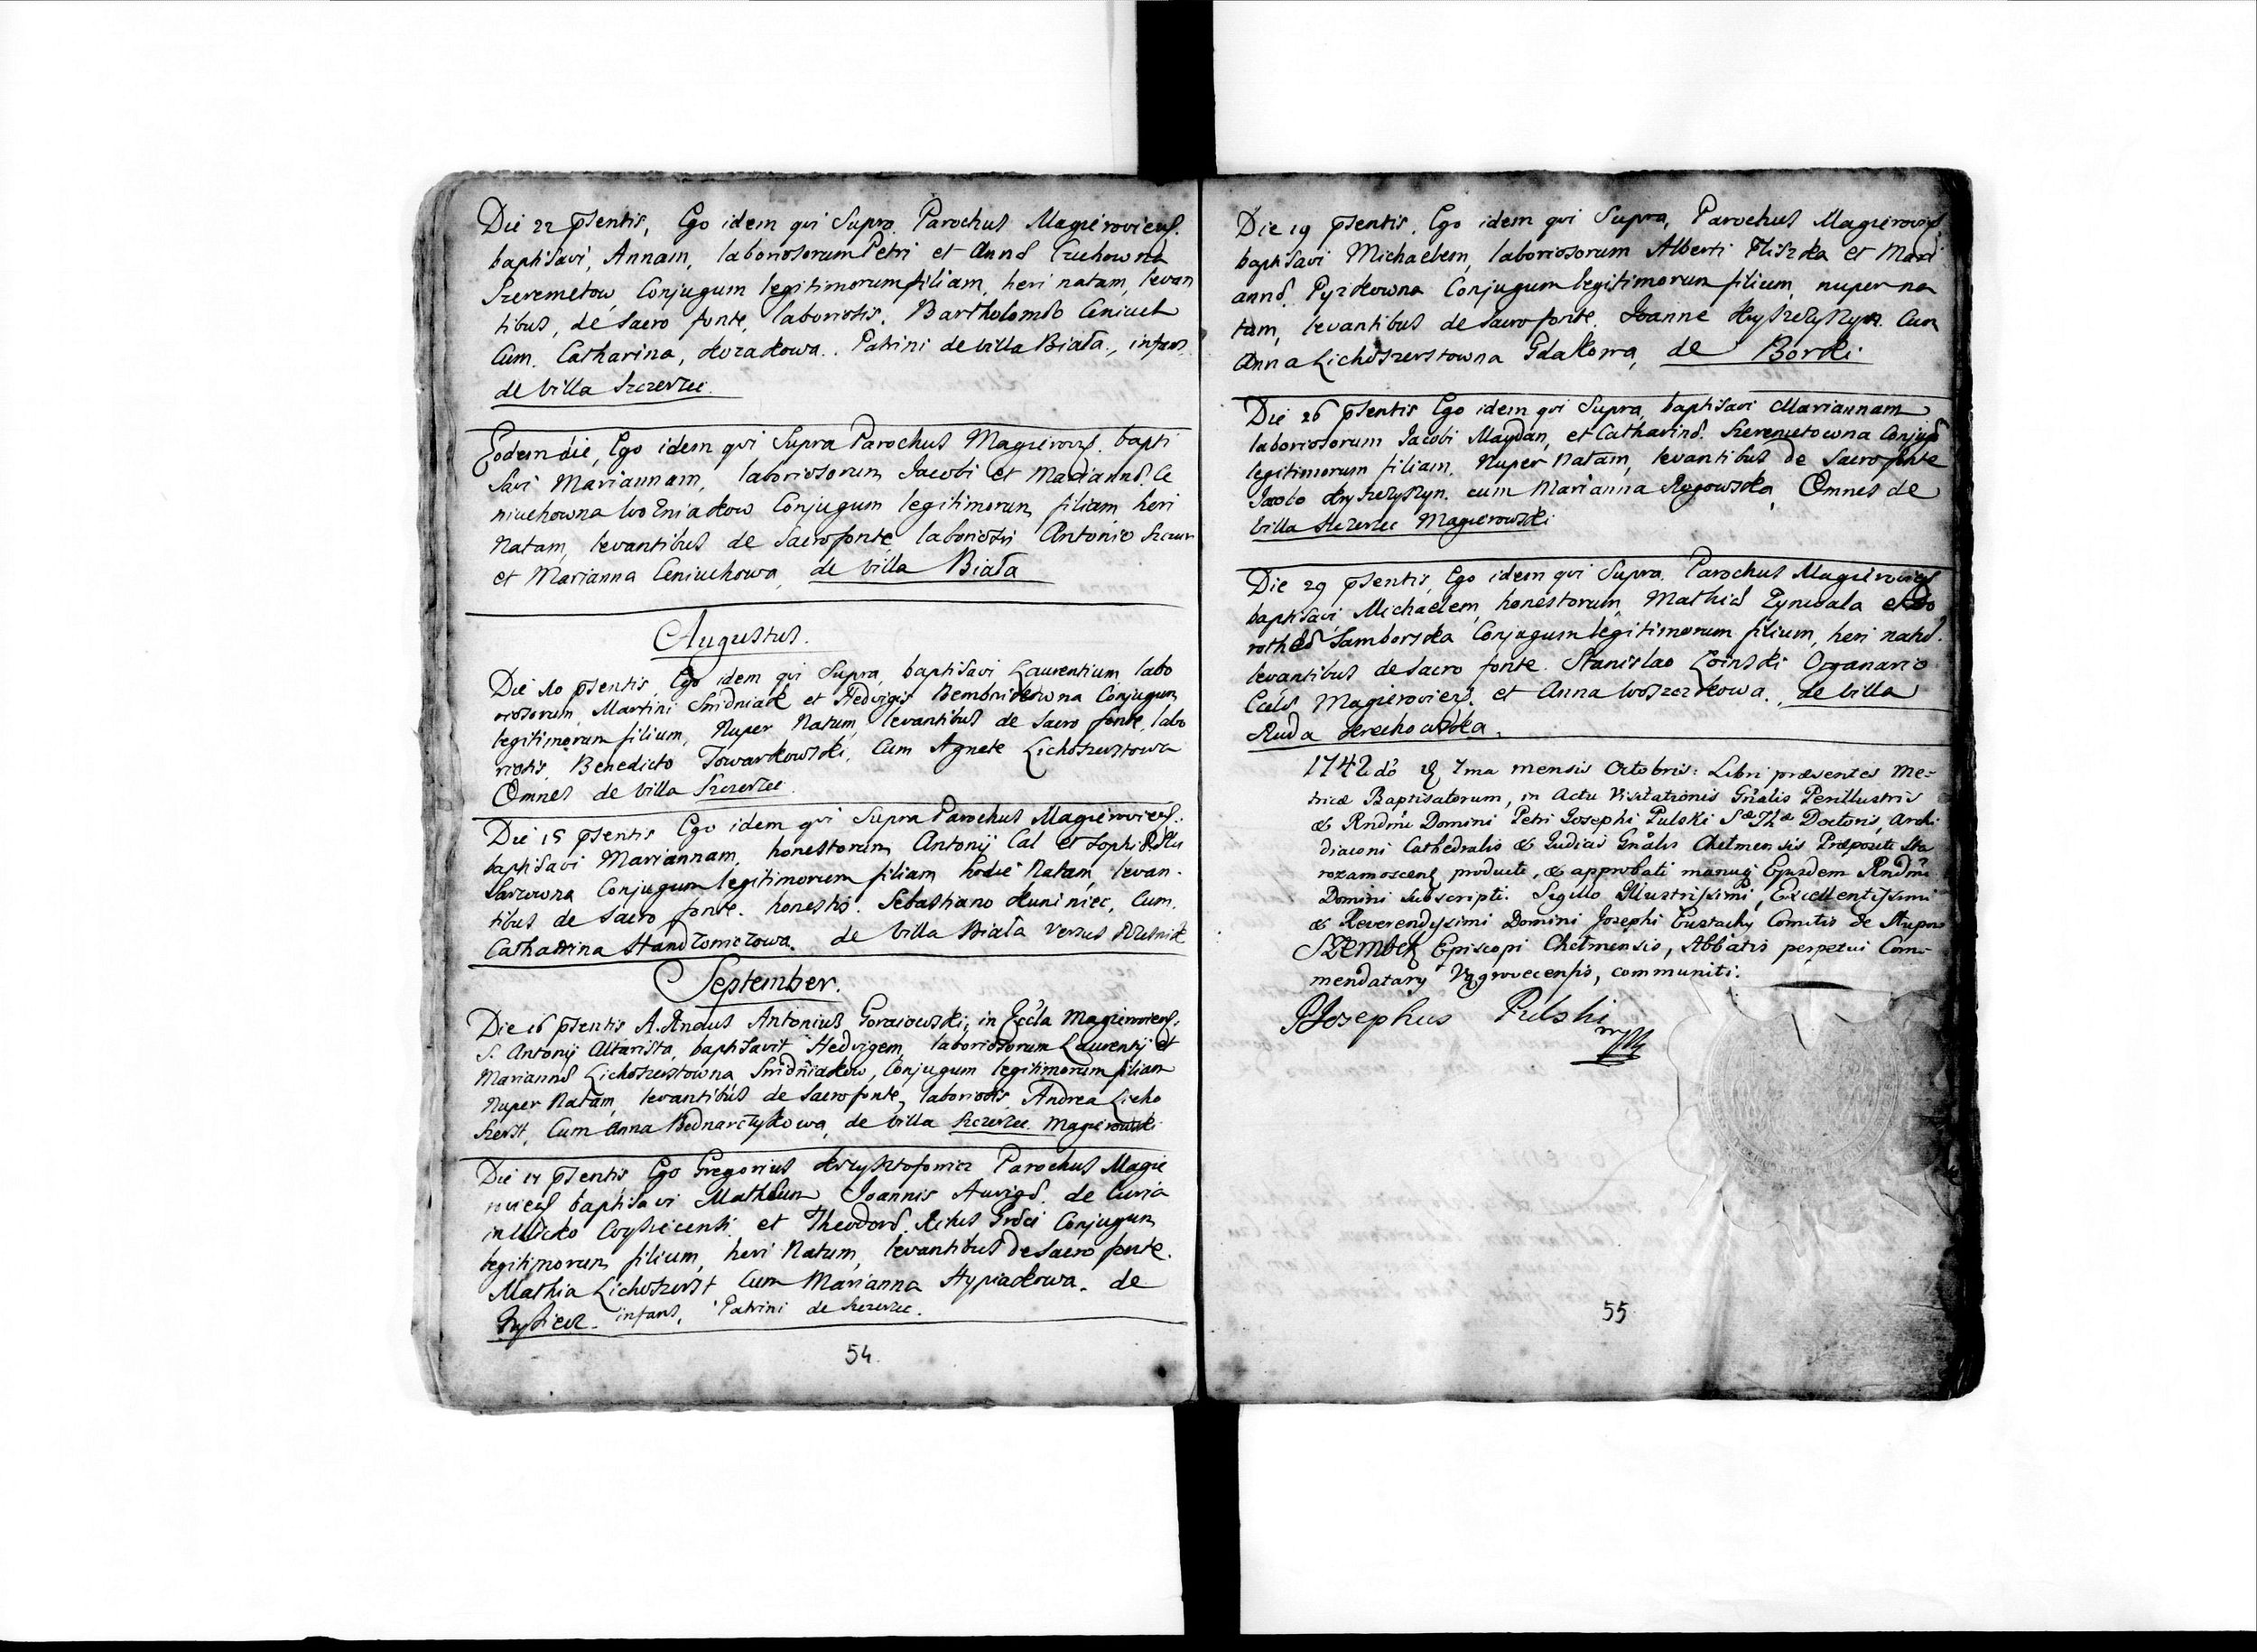 Die 22 psentis, Ego idem qvi Supra Parochus Magieroviens.
baptisavi, Annam, laboriosorum Petri et Annæ
Szeremetow Conjugum legitimorum filiam, heri natam, levan
tibus, de Sacro fonte, laboriosis. Bartholomæo Ceniuch
Cum. Catharina, Kozakowa. Patrini de villa Biała, infans
de villa Szczerzec.
Eodem die, Ego idem qvi Supra Parochus Magierovs. bapti
savi Mariannam, laboriosorum Jacobi et Mariannæ Ce
niuchowna Wozniakow Conjugum legitimorum filiam heri
Natam, levantibus de Sacro fonte, laboriosis Antonio
et Marianna Ceniuchowa, de villa Biała
Augustus.
Die 10 psentis, Ego idem qvi Supra, baptisavi Laurentium, labo
riosorum, Martini Sridniak et Hedvigis Conjugum
legitimorum filium, Nuper Natum, levantibus de Sacro fonte, labo
riosis, Benedicto Towarkowski, Cum Agnete Lichoszerstowa
Omnes de villa Szczerzec.
Die 15 psentis Ego idem qvi Supra Parochus Magieroviens.
baptisavi Mariannam, honestorum Antonij Cal et Sophiæ Slu
sarzowna Conjugum legitimorum filiam hodie Natam, levan-
tibus de Sacro fonte. honestis. Sebastiano Kuniniec, Cum.
Catharina de villa Biała versus
September.
Die 16 psentis A. Rndus Antonius Goraiowski, in Eccla Magieroviens.
S. Antonij Altarista, baptisavit Hedvigem, laboriosorum Laurentij et
Mariannæ Lichoszerstowna Sridniakow, Conjugum legitimorum filiam
Nuper Natam, levantibus de Sacro fonte, laboriosis, Andrea Licho
szerst, Cum Anna Bednarczykowa, de villa Szczerzec Magierowski
Die 17 psentis, Ego Gregorius Krzysztofowicz Parochus Magie
roviens baptisavi Mathæum Joannis Aurigæ. de Curia
et Theodoræ. Ritus Græci Conjugum
legitimorum filium, heri Natum, levantibus de Sacro fonte.
Mathia Lichoszerst Cum Marianna Hypiakowa. de
infans, Patrini de Szczerzec.
54
Die 19 psentis. Ego idem qvi Supra, Parochus Magierovies
baptisavi Michaelem, laboriosorum Alberti Fliszka et Mari
annæ. Pyzikowna Conjugum legitimorum filium, nuper na
tum, levantibus de Sacro fonte. Joanne Krysczyszyn. Cum
Anna Lichoszerstowna Gdakowa, de Borki
Die 26 psentis Ego idem qvi Supra, baptisavi Mariannam
laboriosorum Jacobi Maydan, et Catharinæ. Szeremetowna Conjug
legitimorum filiam. Nuper Natam, levantibus de Sacro fonte
Jacobo Krysczyszyn. cum Marianna Rogowska, Omnes de
villa Szczerzec Magierowski
Die 29 psentis, Ego idem qvi Supra. Parochus Magierovies
baptisavi Michaelem, honestorum Mathiæ et Do
rotheæ Samborska Conjugum legitimorum filium, heri natū.
levantibus de Sacro fonte. Stanislao Łoinski Organario
Eccls Magierovies. et Anna de villa
Ruda
1742dô & 7ma mensis Octobris: Libri præsentes Me-
tricæ Baptisatorum, in Actu Visitationis Gñalis Perillustris
& Rndmi Domini Petri Josephi Pulski Sæ Thæ Doctoris, Archi
diaconi Cathedralis & Judicis Gñalis Chelmensis Præpositi Sta
rozamoscens producti, & approbati manuq Ejusdem Rndmi
Domini subscripti. Sigillo Illustrissimi, Excellentissimi
& Reverendissimi Domini Josephi Eustachy Comitis de Slupow
SZEMBEK Episcopi Chelmensis, Abbatis perpetui Com-
mendatary Vągrovecensis, communiti.
PJosephus Pulski
mpp
55